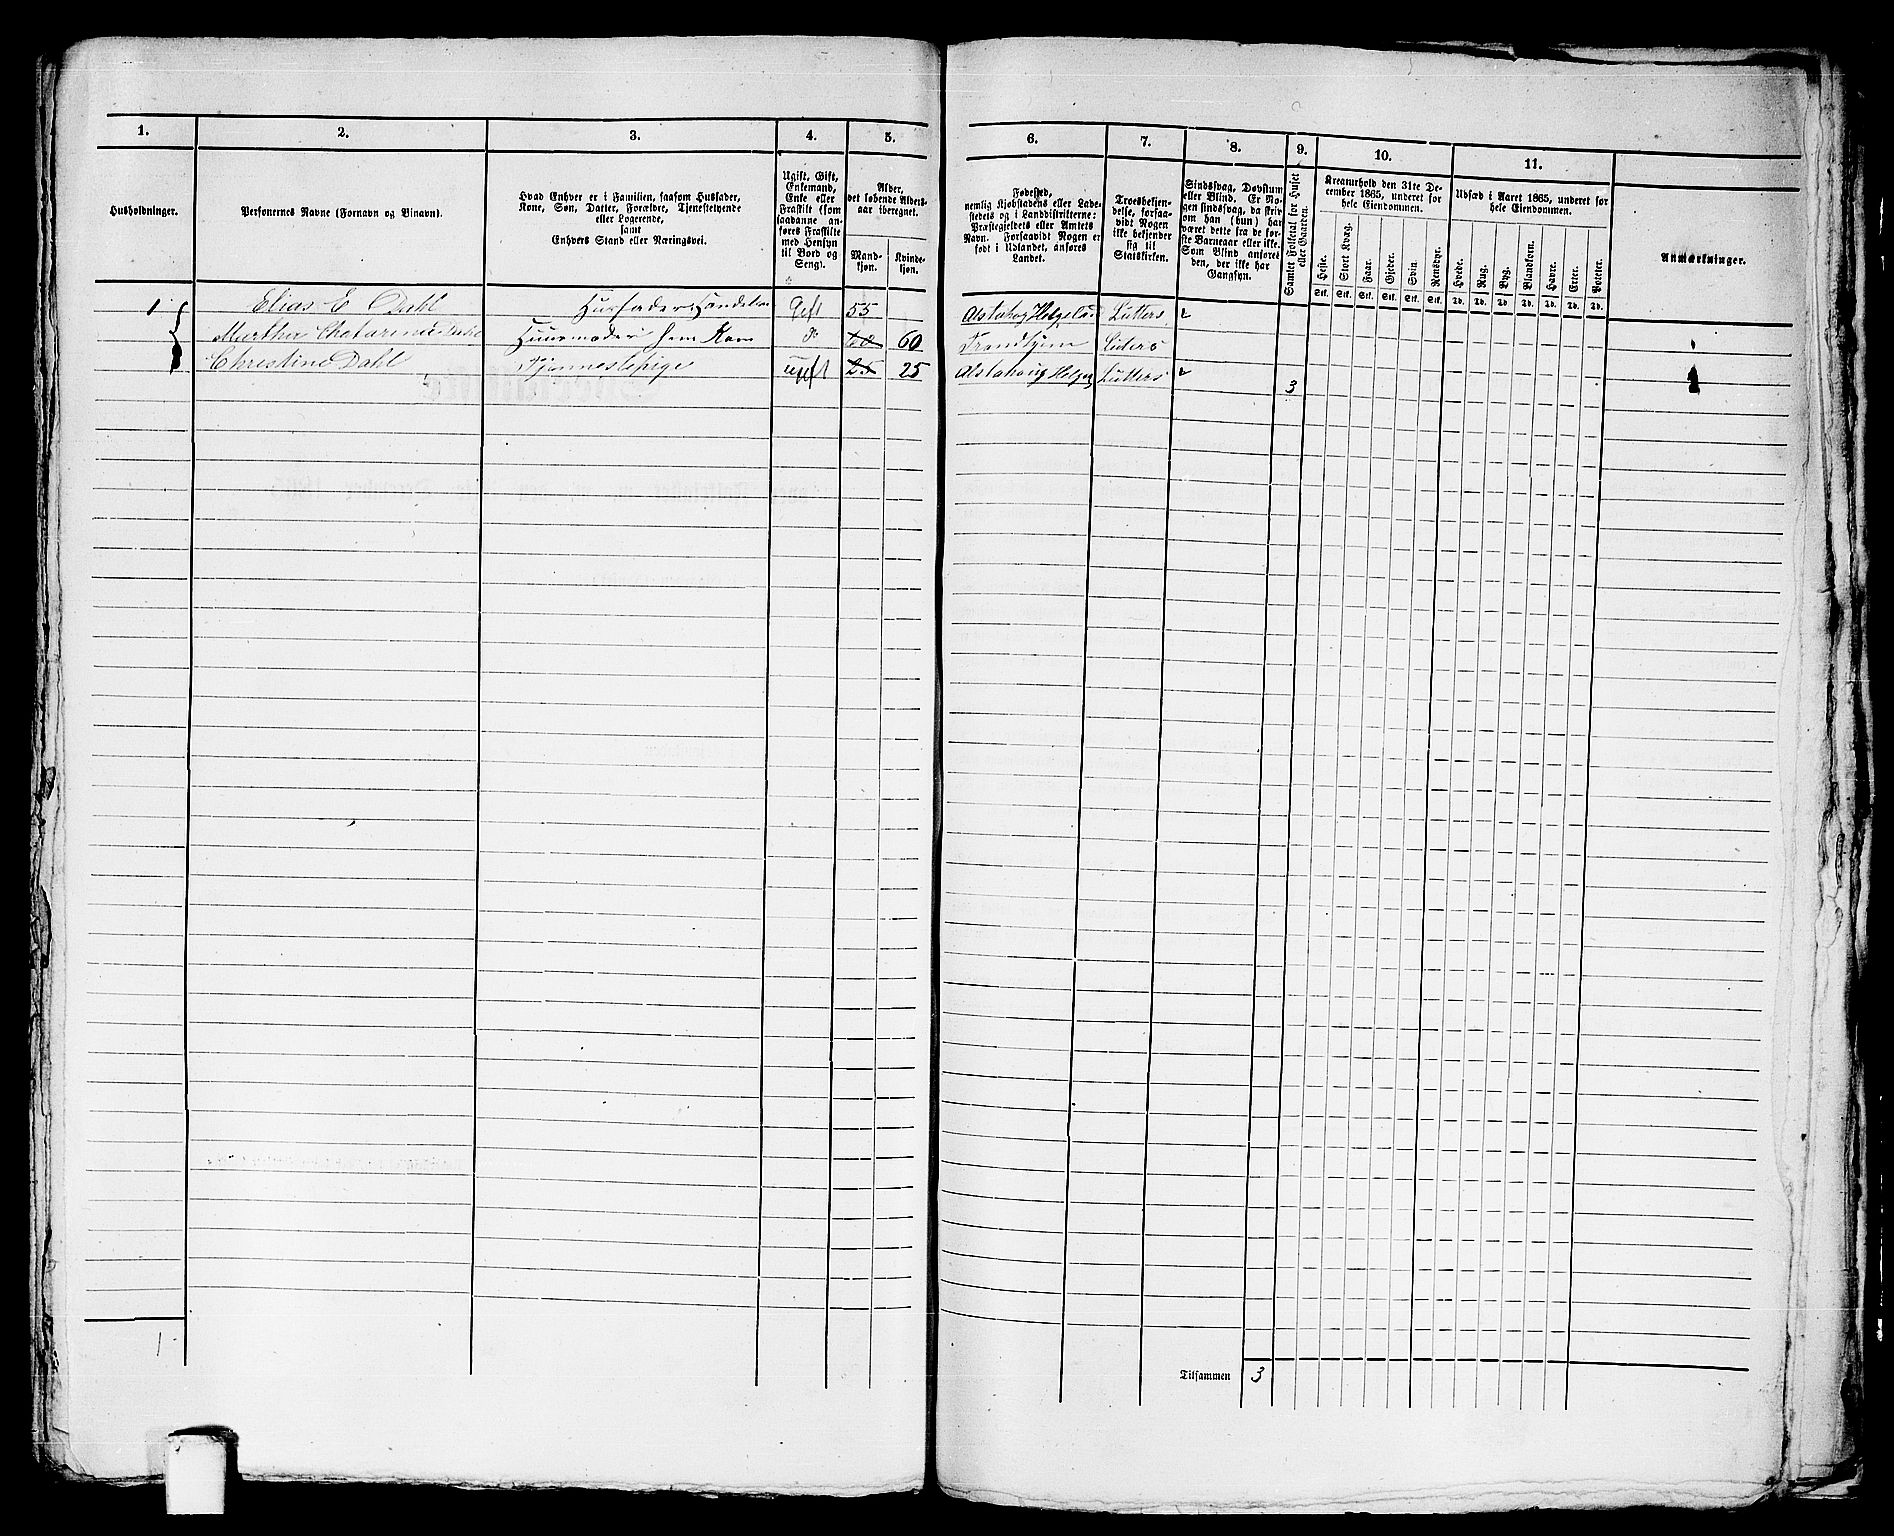 1. 2. 3. 4. 5. 6. 7. 8. 9. 10. 11.
Husholdninger.
Personernes Navne (Fornavn og Binavn).
Hvad Enhver er i Familien, saasom Husfader,
Kone, Søn, Datter, Forældre, Tjenestetyende
eller Logerende,
samt
Enhvers Stand eller Næringsvei.
Ugift, Gift,
Enkemand,
Enke eller
Fraskilt (som
saadanne an-
føres Fraskilte
med Hensyn
til Bord og
Seng).
Alder,
det løbende Alders-
aar iberegnet.
Mand-
kjøn.
Kvinde-
kjøn.
Fødested,
nemlig Kjøbstadens eller Lade-
stedets og i Landdistrikterne:
Præstegjeldets eller Amtets
Navn. Forsaavidt Nogen er
født i Udlandet, anføres
Landet.
Troesbekjen-
delse, forsaa-
vidt Nogen
ikke bekjender
sig til
Statskirken.
Sindssvag, Døvstum
eller Blind. Er No-
gen sindssvag, da skri-
ves om han (hun) har
været dette fra de før-
ste Barneaar eller ikke.
Som Blind anføres
den, der ikke har
Gangsyn.
Samlet Folketal for Huset
eller Gaarden.
Kreaturhold den 31te De-
cember 1865, underet for
hele Eiendommen.
Heste. Stort Kvæg. Faar. Gjeder. Svin. Rensdyr.
Stk. Stk. Stk. Stk. Stk. Stk.
Udsæd i Aaret 1865, underet for
hele Eiendommen.
Hvede. Rug. Byg. Blandkorn. Havre. Erter. Poteter.
Td. Td. Td. Td. Td. Td. Td.
Anmærkninger.
1 Elias E Dahl Husfader Gift 55 Alstahog Lutters
Marther Husmoder 60 Trondhjem
Christine Dahl Tjennestepige ugift 25 25 Alstahoug Lutters 3
1
Tilsammen 3